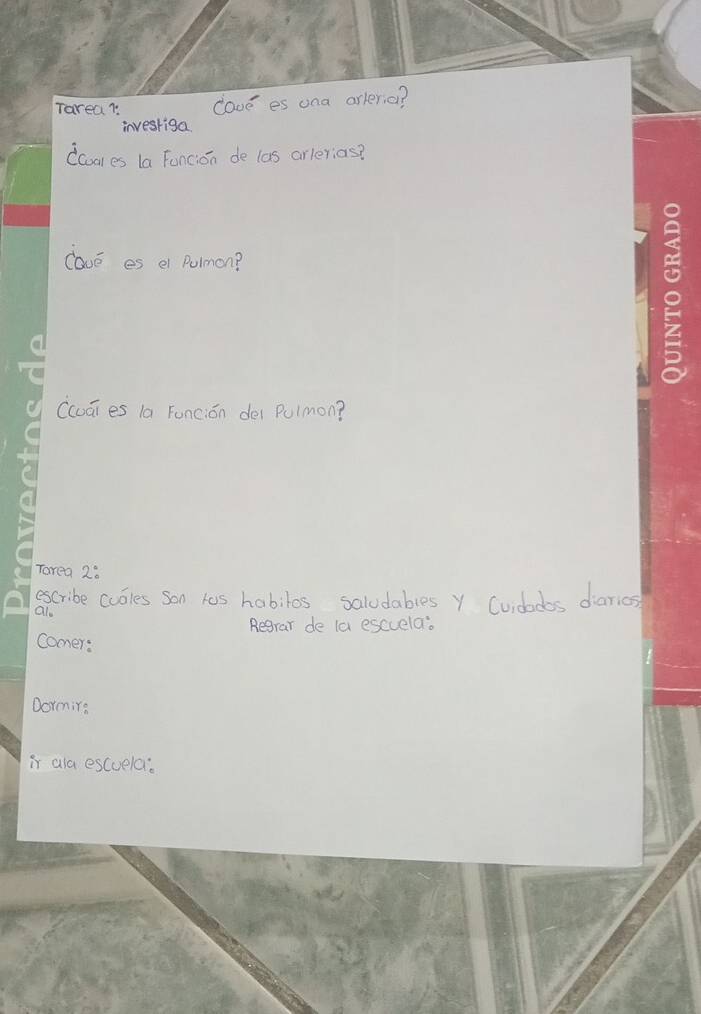 Tarea 1: ¿Qué es una arteria?
investiga
¿Cual es la Función de las arterias?
¿Qué es el Pulmon?
¿Cuál es la Función del Pulmon?
Tarea 2:
escribe cuáles son tus habitos saludables y Cuidados diarios
al.
Regrar de la escuela:
Comer:
Dormir:
ir ala escuela:
Proyectos de
QUINTO GRADO